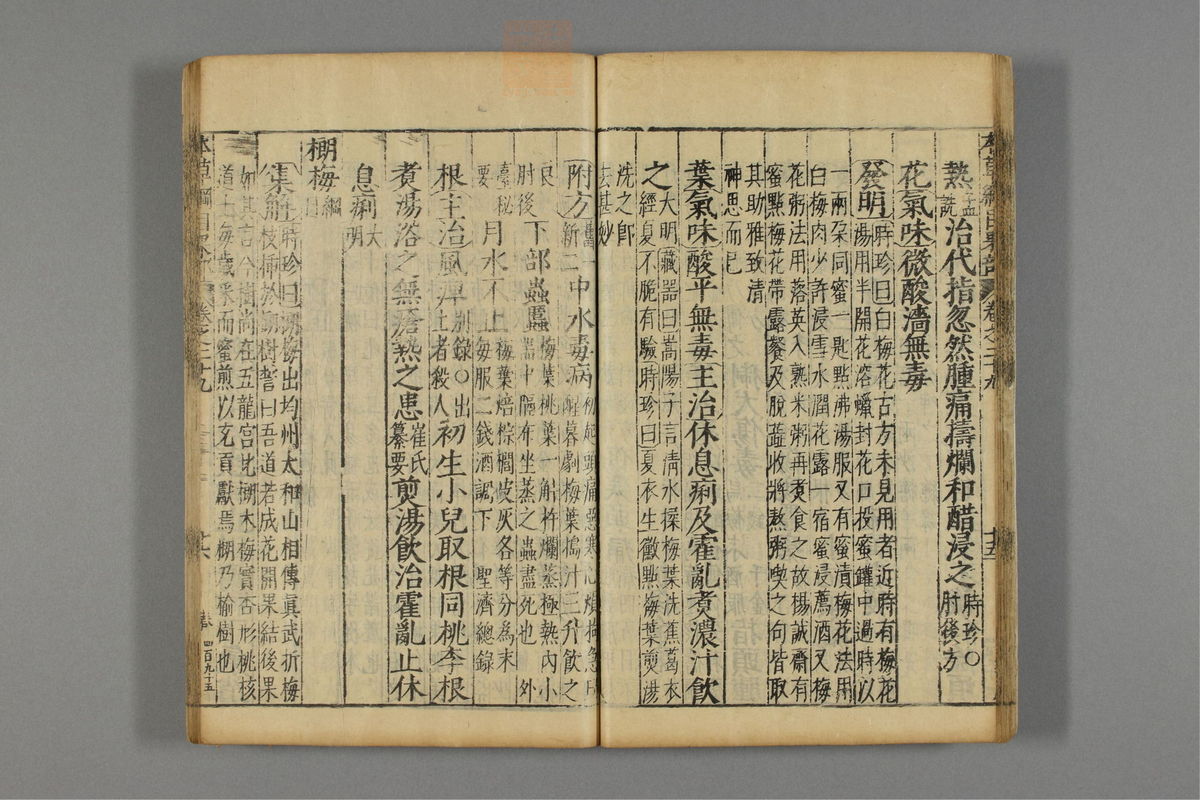 本草綱目果部 卷之二十九 十五
熱孟詵治代指忽然腫痛擣爛和醋浸之時珍○肘後方
花氣味微酸濇無毒
發明時珍曰白梅花古方未見用者近時有梅花
湯用半開花溶蠟封花口投蜜罐中過時以
一兩朶同蜜一匙點沸湯服又有蜜漬梅花法用
白梅肉少許浸雪水潤花露一宿蜜浸薦酒又梅
花粥法用落英入熟米粥再煮食之故楊誠齋有
蜜點梅花帶露餐及脫蕋收將熬粥喫之句皆取
其助雅致清
神思而已
葉氣味酸平無毒主治休息痢及霍亂煮濃汁飲
之大明藏器曰嵩陽子言清水揉梅葉洗蕉葛衣
經夏不脆有驗時珍曰夏衣生黴點梅葉煎湯
洗之卽
去甚妙
附方舊一新二中水毒病初起頭痛惡寒心煩拘急旦
醒暮劇梅葉搗汁三升飲之
良肘後下部蟲䘌梅葉桃葉一斛杵爛蒸極熱內小
器中隔布坐蒸之蟲盡死也 外
臺秘要月水不止梅葉焙椶櫚皮灰各等分為末
每服二錢酒調下 聖濟總錄
根主治風痺別錄○出土者殺人初生小兒取根同桃李根
煮湯浴之無瘡熱之患崔氏纂要煎湯飲治霍亂止休
息痢大明
榔梅綱目
集解時珍曰榔梅出均州太和山相傳眞武折梅
枝插於榔樹誓曰吾道若成花開果結後果
如其言今樹尚在五龍宮北榔木梅實杏形桃核
道士每歲采而蜜煎以充貢獻焉榔乃榆樹也
本草綱目果部 卷之二十九 十六 春 四百九十五